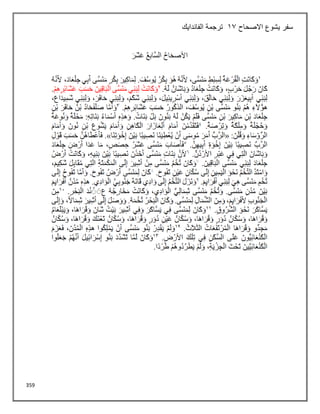 سفر يشوع الاصحاح ١٧ ترجمة الفاندايك
اَلأَصْحَاحُ السَّابعُ عَشَرَ
١وَكَانَتِ الْقُرْعَةُ لِسِبْطِ مَنَسَّى، لأَنَّهُ هُوَ بِكْرُ يُوسُفَ. لِمَاكِيرَ بِكْرِ مَنَسَّى أَبِي جِلْعَادَ، لأَنَّهُ
كَانَ رَجُلَ حَرْبٍ، وَكَانَتْ جِلْعَادُ وَبَاشَانُ لَهُ. ٢وَكَانَتْ لِبَنِي مَنَسَّى الْبَاقِينَ حَسَبَ عَشَائِرِهِمْ.
لِبَنِي أَبِيعَزَرَ وَلِبَنِي حَالَقَ، وَلِبَنِي أَسْرِيئِيلَ، وَلِبَنِي شَكَمَ وَلِبَنِي حَافَرَ، وَلِبَنِي شَمِيدَاعَ،
هؤُلاَءِ هُمْ بَنُو مَنَسَّى بْنِ يُوسُفَ، الذُّكُورُ حَسَبَ عَشَائِرِهِمْ. ٣وَأَمَّا صَلُفْحَادُ بْنُ حَافَرَ بْنِ
جِلْعَادَ بْنِ مَاكِيرَ بْنِ مَنَسَّى فَلَمْ يَكُنْ لَهُ بَنُونَ بَلْ بَنَاتٌ. وَهذِهِ أَسْمَاءُ بَنَاتِهِ: مَحْلَةُ وَنُوعَةُ
وَحُجْلَةُ وَمِلْكَةُ وَتِرْصَةُ. ٤فَتَقَدَّمْنَ أَمَامَ أَلِعَازَارَ الْكَاهِنِ وَأَمَامَ يَشُوعَ بْنِ نُونٍ وَأَمَامَ
الرُّؤَسَاءِ وَقُلْنَ: «الرَّبُّ أَمَرَ مُوسَى أَنْ يُعْطِيَنَا نَصِيبًا بَيْنَ إِخْوَتِنَا». فَأَعْطَاهُنَّ حَسَبَ قَوْلِ
الرَّبِّ نَصِيبًا بَيْنَ إِخْوَةِ أَبِيهِنَّ. ٥فَأَصَابَ مَنَسَّى عَشَرُ حِصَصٍ، مَا عَدَا أَرْضَ جِلْعَادَ
وَبَاشَانَ الَّتِي فِي عَبْرِ الأُرْدُنِّ. ٦لأَنَّ بَنَاتِ مَنَسَّى أَخَذْنَ نَصِيبًا بَيْنَ بَنِيهِ، وَكَانَتْ أَرْضُ
جِلْعَادَ لِبَنِي مَنَسَّى الْبَاقِينَ. ٧وَكَانَ تُخُمُ مَنَسَّى مِنْ أَشِيرَ إِلَى الْمَكْمَتَةِ الَّتِي مُقَابِلَ شَكِيمَ،
وَامْتَدَّ التُّخُمُ نَحْوَ الْيَمِينِ إِلَى سُكَّانِ عَيْنِ تَفُّوحَ. ٨كَانَ لِمَنَسَّى أَرْضُ تَفُّوحَ. وَأَمَّا تَفُّوحُ إِلَى
تُخُمِ مَنَسَّى هِيَ لِبَنِي أَفْرَايِمَ. ٩وَنَزَلَ التُّخُمُ إِلَى وَادِي قَانَةَ جَنُوبِيَّ الْوَادِي. هذِهِ مُدُنُ أَفْرَايِمَ
بَيْنَ مُدُنِ مَنَسَّى. وَتُخُمُ مَنَسَّى شِمَالِيُّ الْوَادِي، وَكَانَتْ مَخَارِجُهُ عِنْدَ الْبَحْرِ. ١٠مِنَ
الْجَنُوبِ لأَفْرَايِمَ، وَمِنَ الشِّمَالِ لِمَنَسَّى. وَكَانَ الْبَحْرُ تُخُمَهُ. وَوَصَلَ إِلَى أَشِيرَ شِمَالاً، وَإِلَى
يَسَّاكَرَ نَحْوَ الشُّرُوقِ. ١١وَكَانَ لِمَنَسَّى فِي يَسَّاكَرَ وَفِي أَشِيرَ بَيْتُ شَانٍ وَقُرَاهَا، وَيَبْلَعَامُ
وَقُرَاهَا، وَسُكَّانُ دُورٍ وَقُرَاهَا، وَسُكَّانُ عَيْنِ دُورٍ وَقُرَاهَا، وَسُكَّانُ تَعْنَكَ وَقُرَاهَا، وَسُكَّانُ
مَجِدُّو وَقُرَاهَا الْمُرْتَفَعَاتُ الثَّلاَثُ. ١٢وَلَمْ يَقْدِرْ بَنُو مَنَسَّى أَنْ يَمْلِكُوا هذِهِ الْمُدُنَ، فَعَزَمَ
الْكَنْعَانِيُّونَ عَلَى السَّكَنِ فِي تِلْكَ الأَرْضِ. ١٣وَكَانَ لَمَّا تَشَدَّدَ بَنُو إِسْرَائِيلَ أَنَّهُمْ جَعَلُوا
الْكَنْعَانِيِّينَ تَحْتَ الْجِزْيَةِ، وَلَمْ يَطْرُدُوهُمْ طَرْدًا.
359